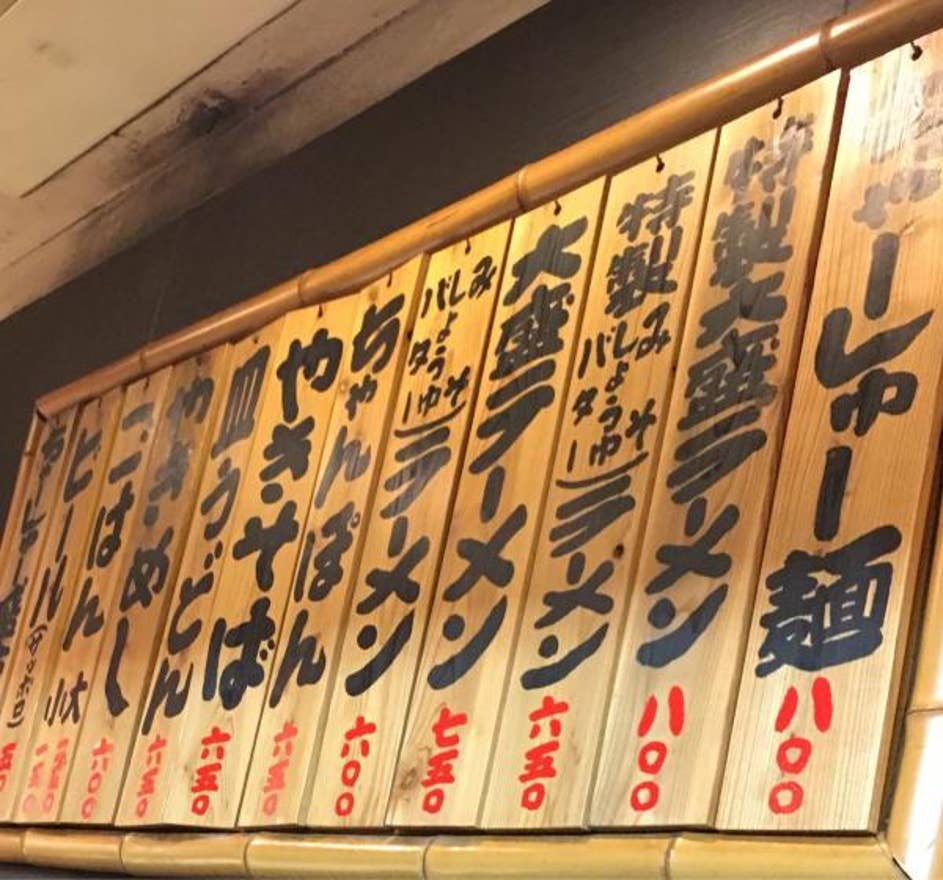 ちゃーしゅー麺 八〇〇
特製大盛ラーメン 八〇〇
特製
みそ
しょうゆ
バター
ラーメン 六五〇
大盛ラーメン 七五〇
みそ
しょうゆ
バター
ラーメン 六〇〇
ちゃんぽん 六五〇
やきそば 六五〇
皿うどん 六五〇
やきめし 六〇〇
ごはん
大
小
一五〇
ビール